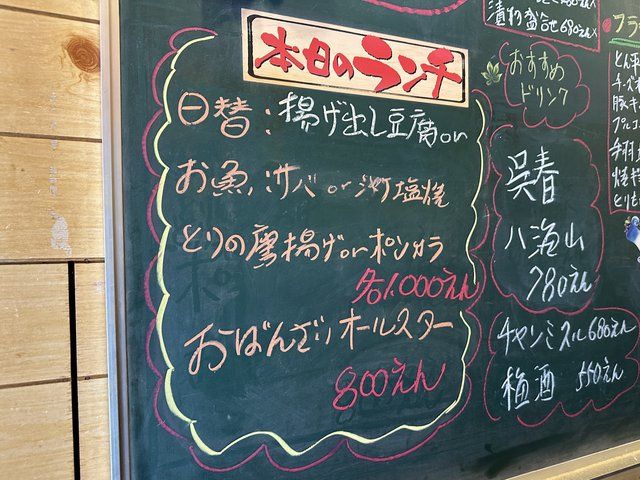 本日のランチ
日替:揚げ出し豆腐or
お魚:サバorジャケ塩焼
とりの唐揚げorポンカラ
各1.000えん
おばんざいオールスター
800えん
漬物盛合せ680えん
おすすめ
ドリンク
呉春
八海山
780えん
チャンミスル680えん
梅酒 550えん